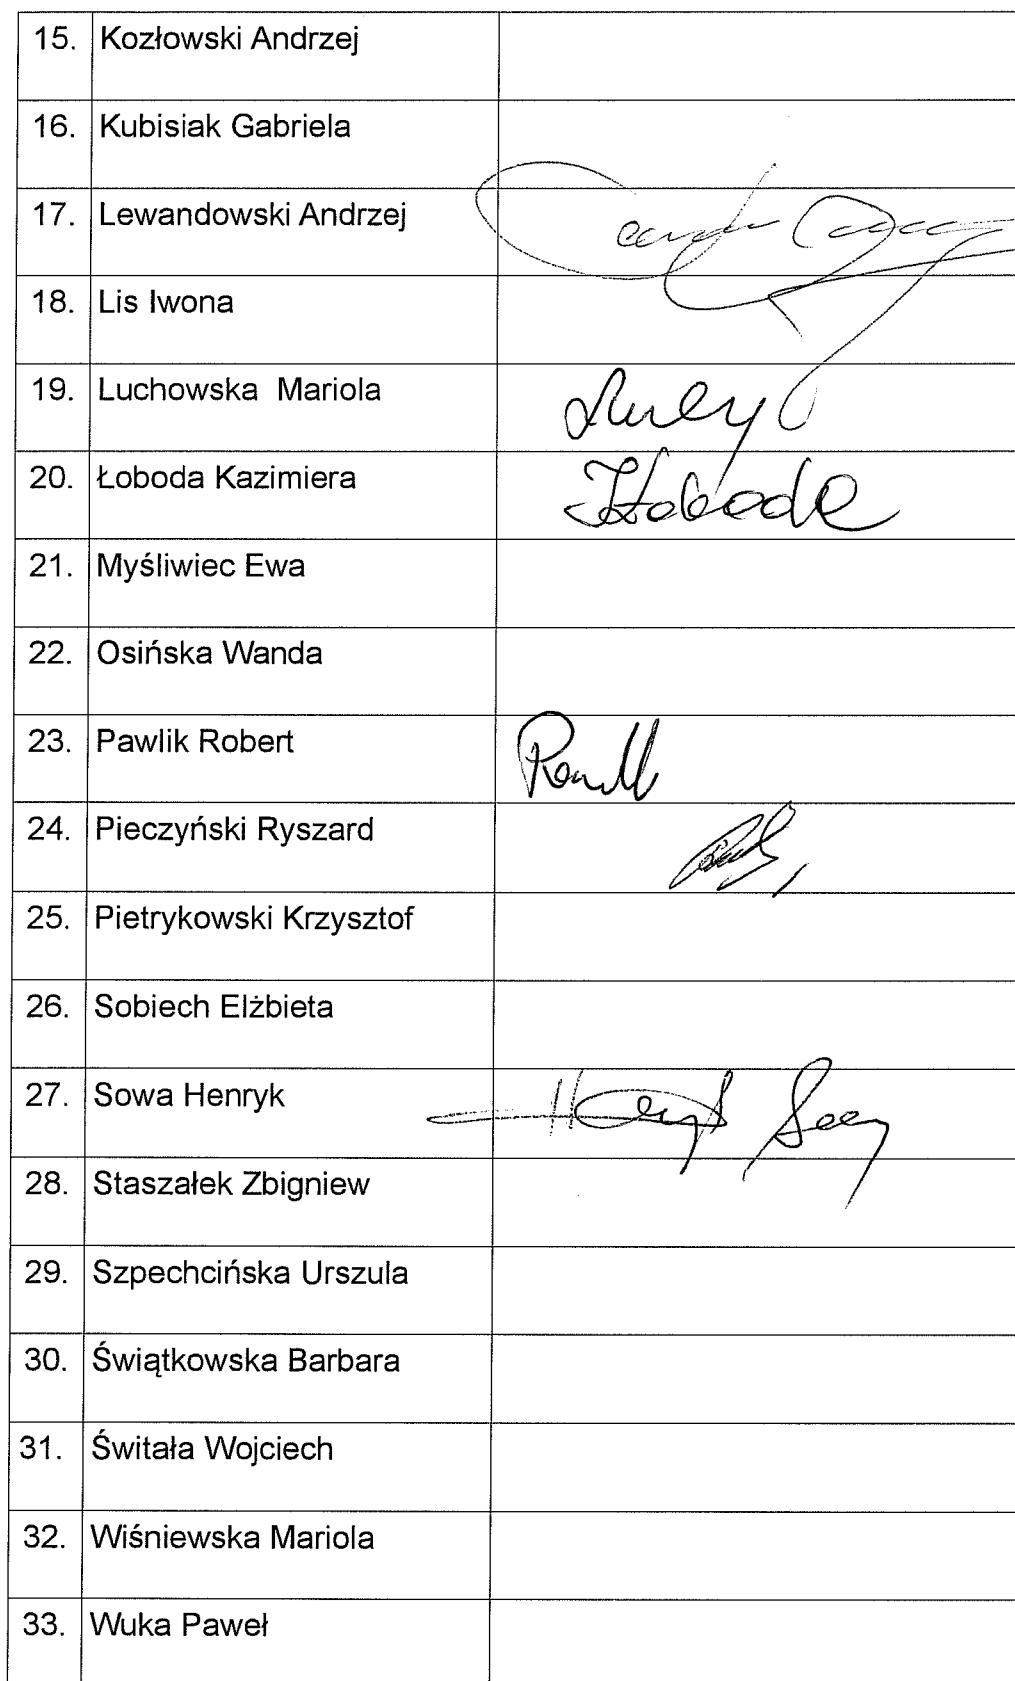 15. Kozłowski Andrzej
16. Kubisiak Gabriela
17. Lewandowski Andrzej
18. Lis Iwona
19. Luchowska Mariola
20. Łoboda Kazimiera
21. Myśliwiec Ewa
22. Osińska Wanda
23. Pawlik Robert
24. Pieczyński Ryszard
25. Pietrykowski Krzysztof
26. Sobiech Elżbieta
27. Sowa Henryk
28. Staszałek Zbigniew
29. Szpechcińska Urszula
30. Świątkowska Barbara
31. Świtała Wojciech
32. Wiśniewska Mariola
33. Wuka Paweł